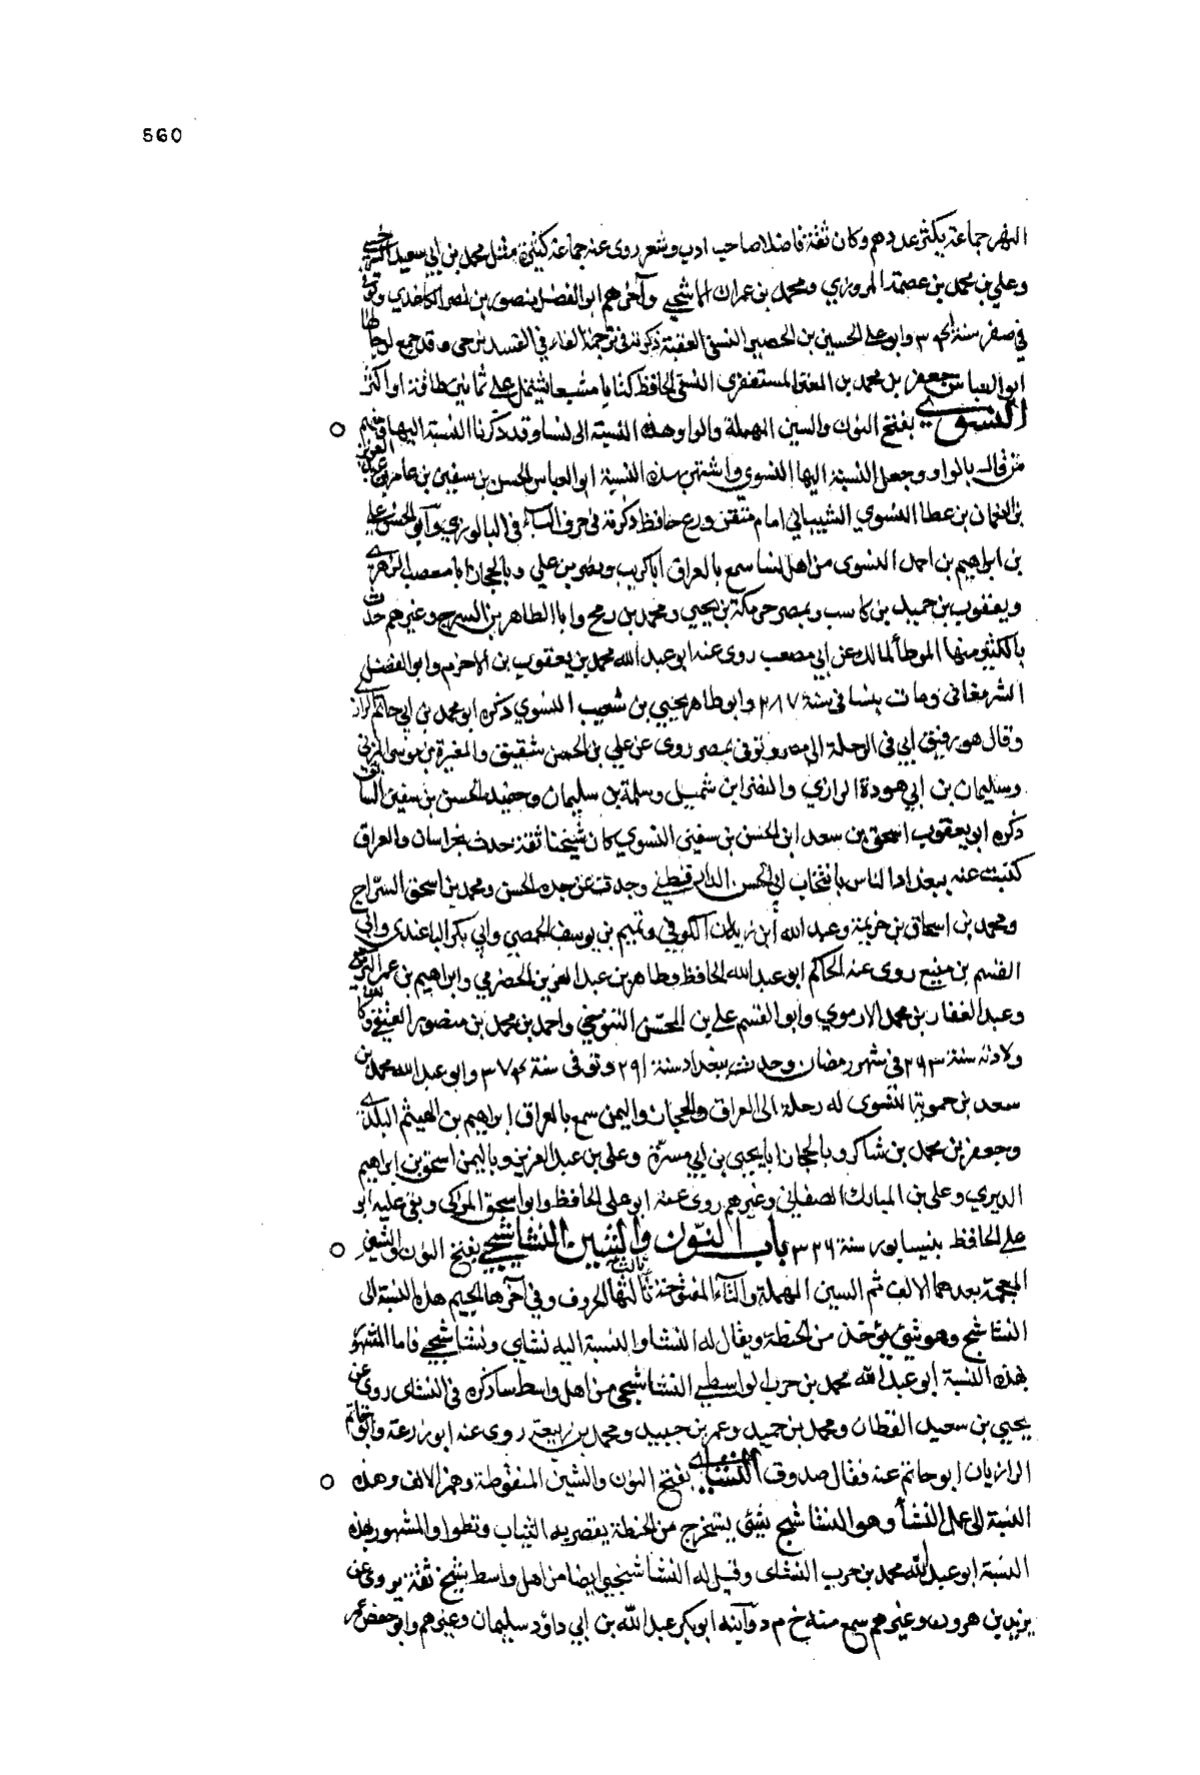 560
النهر جماعة يكثر عددهم وكان ثقة فاضلا صاحب ادب وشعر روى عنه جماعة كثيرة مثل محمد بن ابي سعيد السرخسي
وعلي بن محمد بن عصمة المروزي ومحمد بن عمران الماشجي وآخرهم ابو الفضل منصور بن نصر الكاغذي وتوفي
في صفر سنة وابو علي الحسين بن الخضر النسفي الفقيه ذكرته في ترجمة الفاء في الفشيديزجي وقد جمع لرجالها
ابو العباس جعفر بن محمد بن المعتز المستغفري النسفي الحافظ كتابا مشبعا يشتمل على ثمانين طاقة او اكثر
النسوي بفتح النون والسين المهملة والواو وهذه النسبة الى نسا وقد ذكرنا النسبة اليها فمنهم
من قال بالواو وجعل النسبة اليها النسوي واشتهر بهذه النسبة ابو العباس الحسن بن سفين بن عامر بن عبد العزيز
بن النعمان بن عطا النسوي الشيباني امام متقن ورع حافظ ذكرته في حرف الباء في البالوزي وابو الحسن علي
بن ابراهيم بن احمد النسوى من اهل نسا سمع بالعراق ابا كريب ونصر بن علي وبالحجاز ابا مصعب الزهري
ويعقوب بن حميد بن كاسب وبمصر حرملة بن يحيى ومحمد بن رمح وابا الطاهر بن السرح وغيرهم حدث
بالكثير ومنها الموطأ لمالك عن ابي مصعب روى عنه ابو عبد الله محمد بن يعقوب بن الاخرم وابو الفضل
الشرمغانى ومات بنسا فى سنة ٢٨٧ وابو طاهر يحيى بن شعيب النسوي ذكره ابو محمد بن ابي حاتم الرازي
وقال هو رفيق ابي في الرحلة الى مصر وتوفى بمصر روى عن علي بن الحسن شقيق والمغيرة بن موسى المزني
وسليمان بن ابي هودة الرازي والنضر ابن شميل وسلمة بن سليمان وحفيد الحسن بن سفين السابق
ذكره ابو يعقوب اسحق بن سعد ابن الحسن بن سفين النسوي كان شيخنا ثقة حدث بخراسان والعراق
كتبت عنه ببغداد الناس بانتخاب ابي الحسن الدارقطني وحدث عن جده الحسن ومحمد بن اسحق السراج
ومحمد بن اسحاق بن خزيمة وعبد الله ابن زيدان الكوفي وتميم بن يوسف الحمصي وابي بكر الباغندى وابي
القسم بن منيع روى عنه الحاكم ابو عبد الله الحافظ وطاهر بن عبد العزيز الحضرمي وابراهيم بن عمر البرمكي
وعبد الغفار بن محمد الارموي وابو القسم علي بن المحسن التنوخي واحمد بن محمد بن منصور العتيقي وكانت
ولادته سنة ٢٩٣ فى شهر رمضان وحدث ببغداد سنة وتوفى سنة ٣٧٤ وابو عبد الله محمد بن
سعد بن حمويه النسوى له رحلة الى العراق والحجاز واليمن سمع بالعراق ابراهيم بن الهيثم البلدي
وجعفر بن محمد بن شاكر وبالحجاز ابا يحيى بن ابي مسرة وعلى بن عبد العزيز وباليمن اسحق بن ابراهيم
الدبري وعلى بن المبارك الصغاني وغيرهم روى عنه ابو على الحافظ وابو اسحق المزكى وبقى عليه ابو
على الحافظ بنيسابور سنة ٣٢٦ باب النون والشين النشاستجي بفتح النون والشين
المعجمة بعدهما الالف ثم السين المهملة والتاء المفتوحة ثالث الحروف وفي آخرها الجيم هذه النسبة الى
النشاستج وهو شئ يؤخذ من الحنطة ويقال له النشا والنسبة اليه نشاي ونشاستجي فاما المشهور
بهذه النسبة ابو عبد الله محمد بن حرب الواسطي النشاستجي من اهل واسط ساذكره في النشاى روى عن
يحيى بن سعيد القطان ومحمد بن حميد وعمر بن حبيب ومحمد بن ربيعة روى عنه ابو زرعة وابو حاتم
الرازيان ابو حاتم عنه فقال صدوق النشائي بفتح النون والشين المنقوطة وهمز الالف وهذه
النسبة الى عمل النشأ وهو النشاستج شئ يستخرج من الحنطة يقصر به الثياب وتطوا والمشهور بهذه
النسبة ابو عبد الله محمد بن حرب النشاى وقيل له النشاستجي ايضا من اهل واسط شيخ ثقة يروى عن
يزيد بن هرون وغيرهم سمع منه خ م د وآبنه ابو بكر عبد الله بن ابي داؤد سليمان وغيرهم وابو حفص عمر